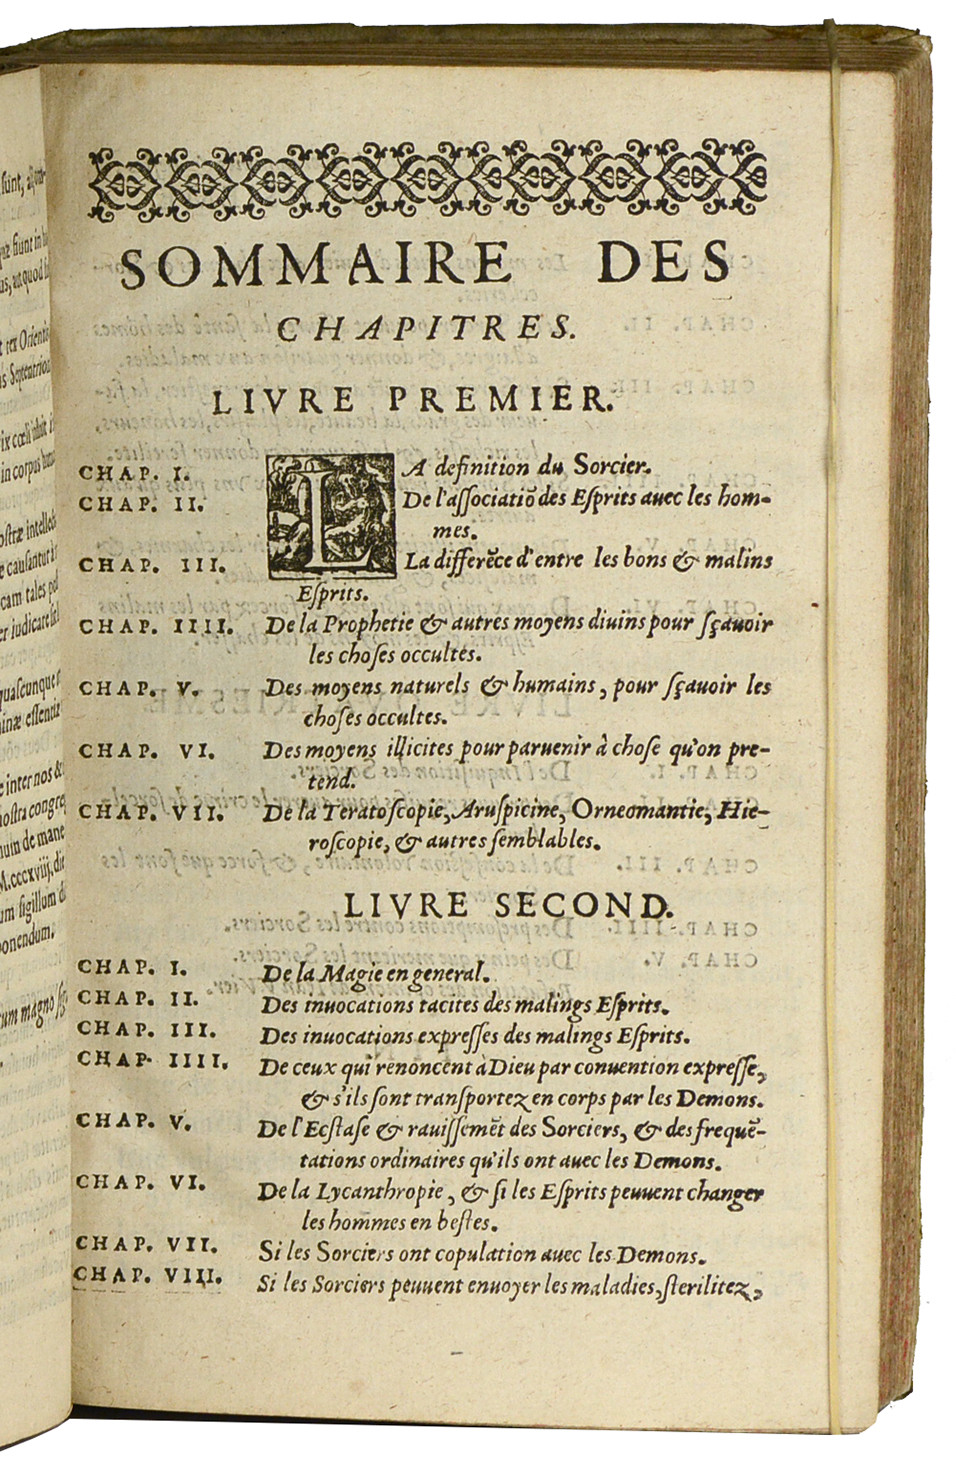 sunt,
fiunt in
quod
rex Orientis
Septentrion
in corpus
ostræ intellec
causantur
cam tales
judicare
quascunque
inæ essentiæ
inter nos &
nostra congreg
de mane
M.cccxviij. die
um sigillum
ponendum.
cum magno
SOMMAIRE DES
CHAPITRES.
LIVRE PREMIER.
CHAP. I. LA definition du Sorcier.
CHAP. II. De l'associatiõ des Esprits auec les hom-
mes.
CHAP. III. La differẽce d'entre les bons & malins
Esprits.
CHAP. IIII. De la Prophetie & autres moyens diuins pour sçauoir
les choses occultes.
CHAP. V. Des moyens naturels & humains, pour sçauoir les
choses occultes.
CHAP. VI. Des moyens illicites pour paruenir à chose qu'on pre-
tend.
CHAP. VII. De la Teratoscopie, Aruspicine, Orneomantie, Hie-
roscopie, & autres semblables.
LIVRE SECOND.
CHAP. I. De la Magie en general.
CHAP. II. Des inuocations tacites des malings Esprits.
CHAP. III. Des inuocations expresses des malings Esprits.
CHAP. IIII. De ceux qui renoncent à Dieu par conuention expresse,
& s'ils sont transportez en corps par les Demons.
CHAP. V. De l'Ecstase & rauissemẽt des Sorciers, & des frequẽ-
tations ordinaires qu'ils ont auec les Demons.
CHAP. VI. De la Lycanthropie, & si les Esprits peuuent changer
les hommes en bestes.
CHAP. VII. Si les Sorciers ont copulation auec les Demons.
CHAP. VIII. Si les Sorciers peuuent enuoyer les maladies, sterilitez,